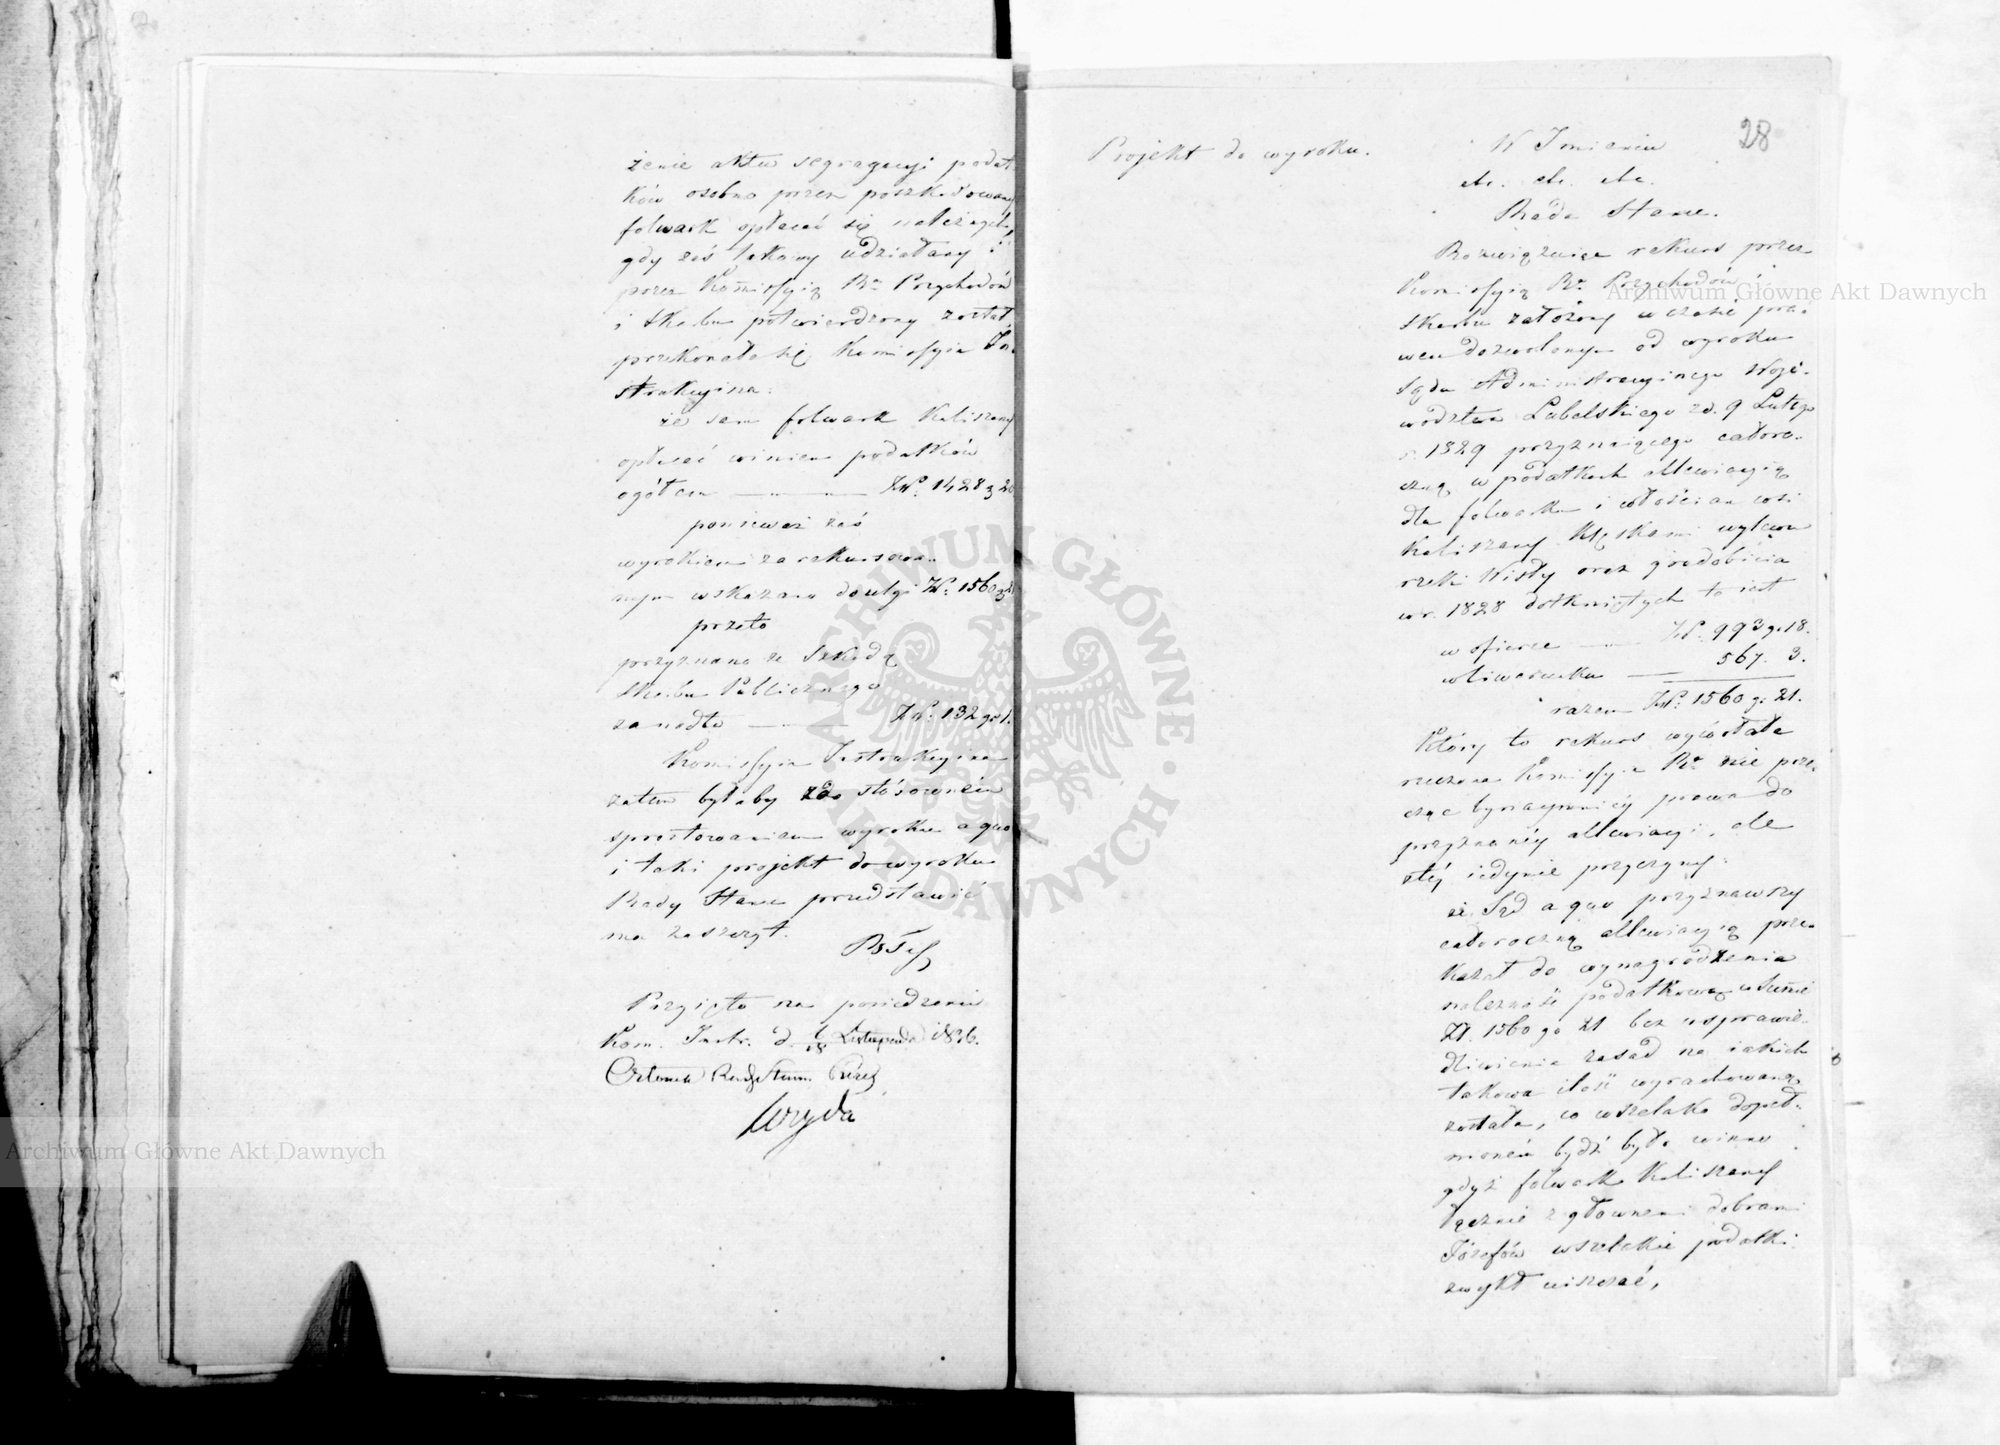 żenie aktu segregacyi podat
ków osobno przez poszkodowany
folwark opłacać się należnych,
gdy zaś takowy udziałany i
przez Kommissyią Rz. Przychodów
i Skarbu potwierdzony został,
przekonała się Kommissyia In-
strukcyina:
że sam folwark Kaliszany
opłacać winien podatków
ogółem — — Złp. 1428 g 20
ponieważ zaś
wyrokiem zarekursowa-
nym wskazano do ulgi Złp. 1560 g 21
przeto
przyznano ze szkodą
Skarbu Publicznego
zanadto — — Złp. 132 gr 1.
Kommissyia Instrukcyina
zatem byłaby za stósownem
sprostowaniem wyroku a quo
i taki projekt do wyroku
Rady Stanu przedstawić
ma zaszczyt.
Przyięto na posiedzeniu
Kom. Instr. d. 6/18 Listopada 1836.
Członek Rady Stanu Prezes
Projekt do wyroku.
28
W Imieniu
etc. etc. etc.
Rada Stanu.
Rozwiązuiąc rekurs przez
Kommissyią Rz. Przychodów i
Skarbu założony w czasie pra-
wem dozwolonym od wyroku
Sądu Administracyinego Woje-
wództwa Lubelskiego z d. 9 Lutego
r. 1829 przyznaiącego całoro-
czną w podatkach allewiacyią
dla folwarku i włościan wsi
Kaliszany klęskami wylewu
rzeki Wisły oraz gradobicia
w r. 1828 dotkniętych to iest
w ofierze — Złp. 993 g. 18.
w liwerunku — 567. 3.
razem Złp. 1560 g. 21.
Który to rekurs wywołała
rzeczona Kommissyia Rz. nie prze-
cząc bynaymniéy prawa do
przyznanéy allewiacyi, ale
z téy iedynie przyczyny:
że Sąd a quo przyznawszy
całoroczną allewiacyią prze-
kazał do wynagrodzenia
należność podatkową w summie
Zł. 1560 g 21 bez usprawie-
dliwienia zasad na iakich
takowa ilość wyrachowaną
została, co wszelako dopeł-
nioném bydź było winno
gdyż folwark Kaliszany
łącznie z głównemi dobrami
Józefów wszelakie podatki
zwykł uiszczać,
Archiwum Główne Akt Dawnych
Archiwum Główne Akt Dawnych
ARCHIWUM GŁÓWNE · AKT DAWNYCH ·